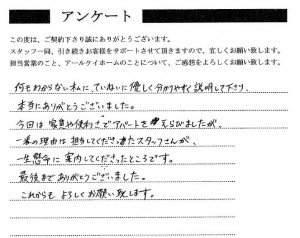 アンケート
この度は、ご契約下さり誠にありがとうございます。
スタッフ一同、引き続きお客様をサポートさせて頂きますので、宜しくお願い致します。
担当営業のこと、アールケイホームのことについて、ご感想をよろしくお願い致します。
何もわからない私に、ていねいに優しく分かりやすく説明して下さり、
本当にありがとうございました。
今回は家賃や便利さでアパートをえらびましたが、
一番の理由は担当してくださったスタッフさんが、
一生懸命に案内してくださったところです。
最後までありがとうございました。
これからもよろしくお願い致します。